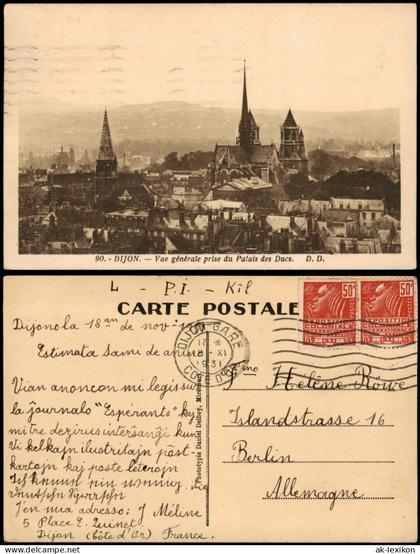 90. - DIJON. — Vue générale prise du Palais des Ducs. D. D.
L - P.I. - Kîl
CARTE POSTALE
Dijono la 18an de nov-
Estimata Samideanino
Vian anoncon mi legis sur
la ĵurnalo "Esperanto" kaj
mi tre dezirus interŝanĝi kun
Vi kelkajn ilustritajn post-
kartojn kaj poste leterojn
Jen mia adreso: J Méline
5 Place E. Quinet
Dijon (Côte d'Or) France.
Phototypie Daniel Delboy, Mirecourt
DIJON GARE
18 - XI
1931
CÔTE D'OR
50c
EXPOSITION
COLONIALE
INTERNATIONALE
PARIS 1931
50c
EXPOSITION
COLONIALE
INTERNATIONALE
PARIS 1931
Fino Hélène Röwe
Islandstrasse 16
Berlin
Allemagne
© ak-lexikon.com